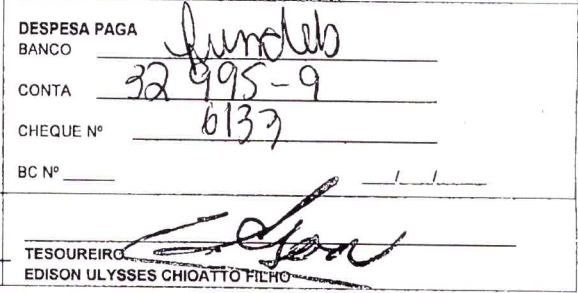 DESPESA PAGA
BANCO Fundeb
CONTA 32 995-9
CHEQUE Nº 6137
BC Nº ______ __/__/__
TESOUREIRO
EDISON ULYSSES CHIOATTO FILHO